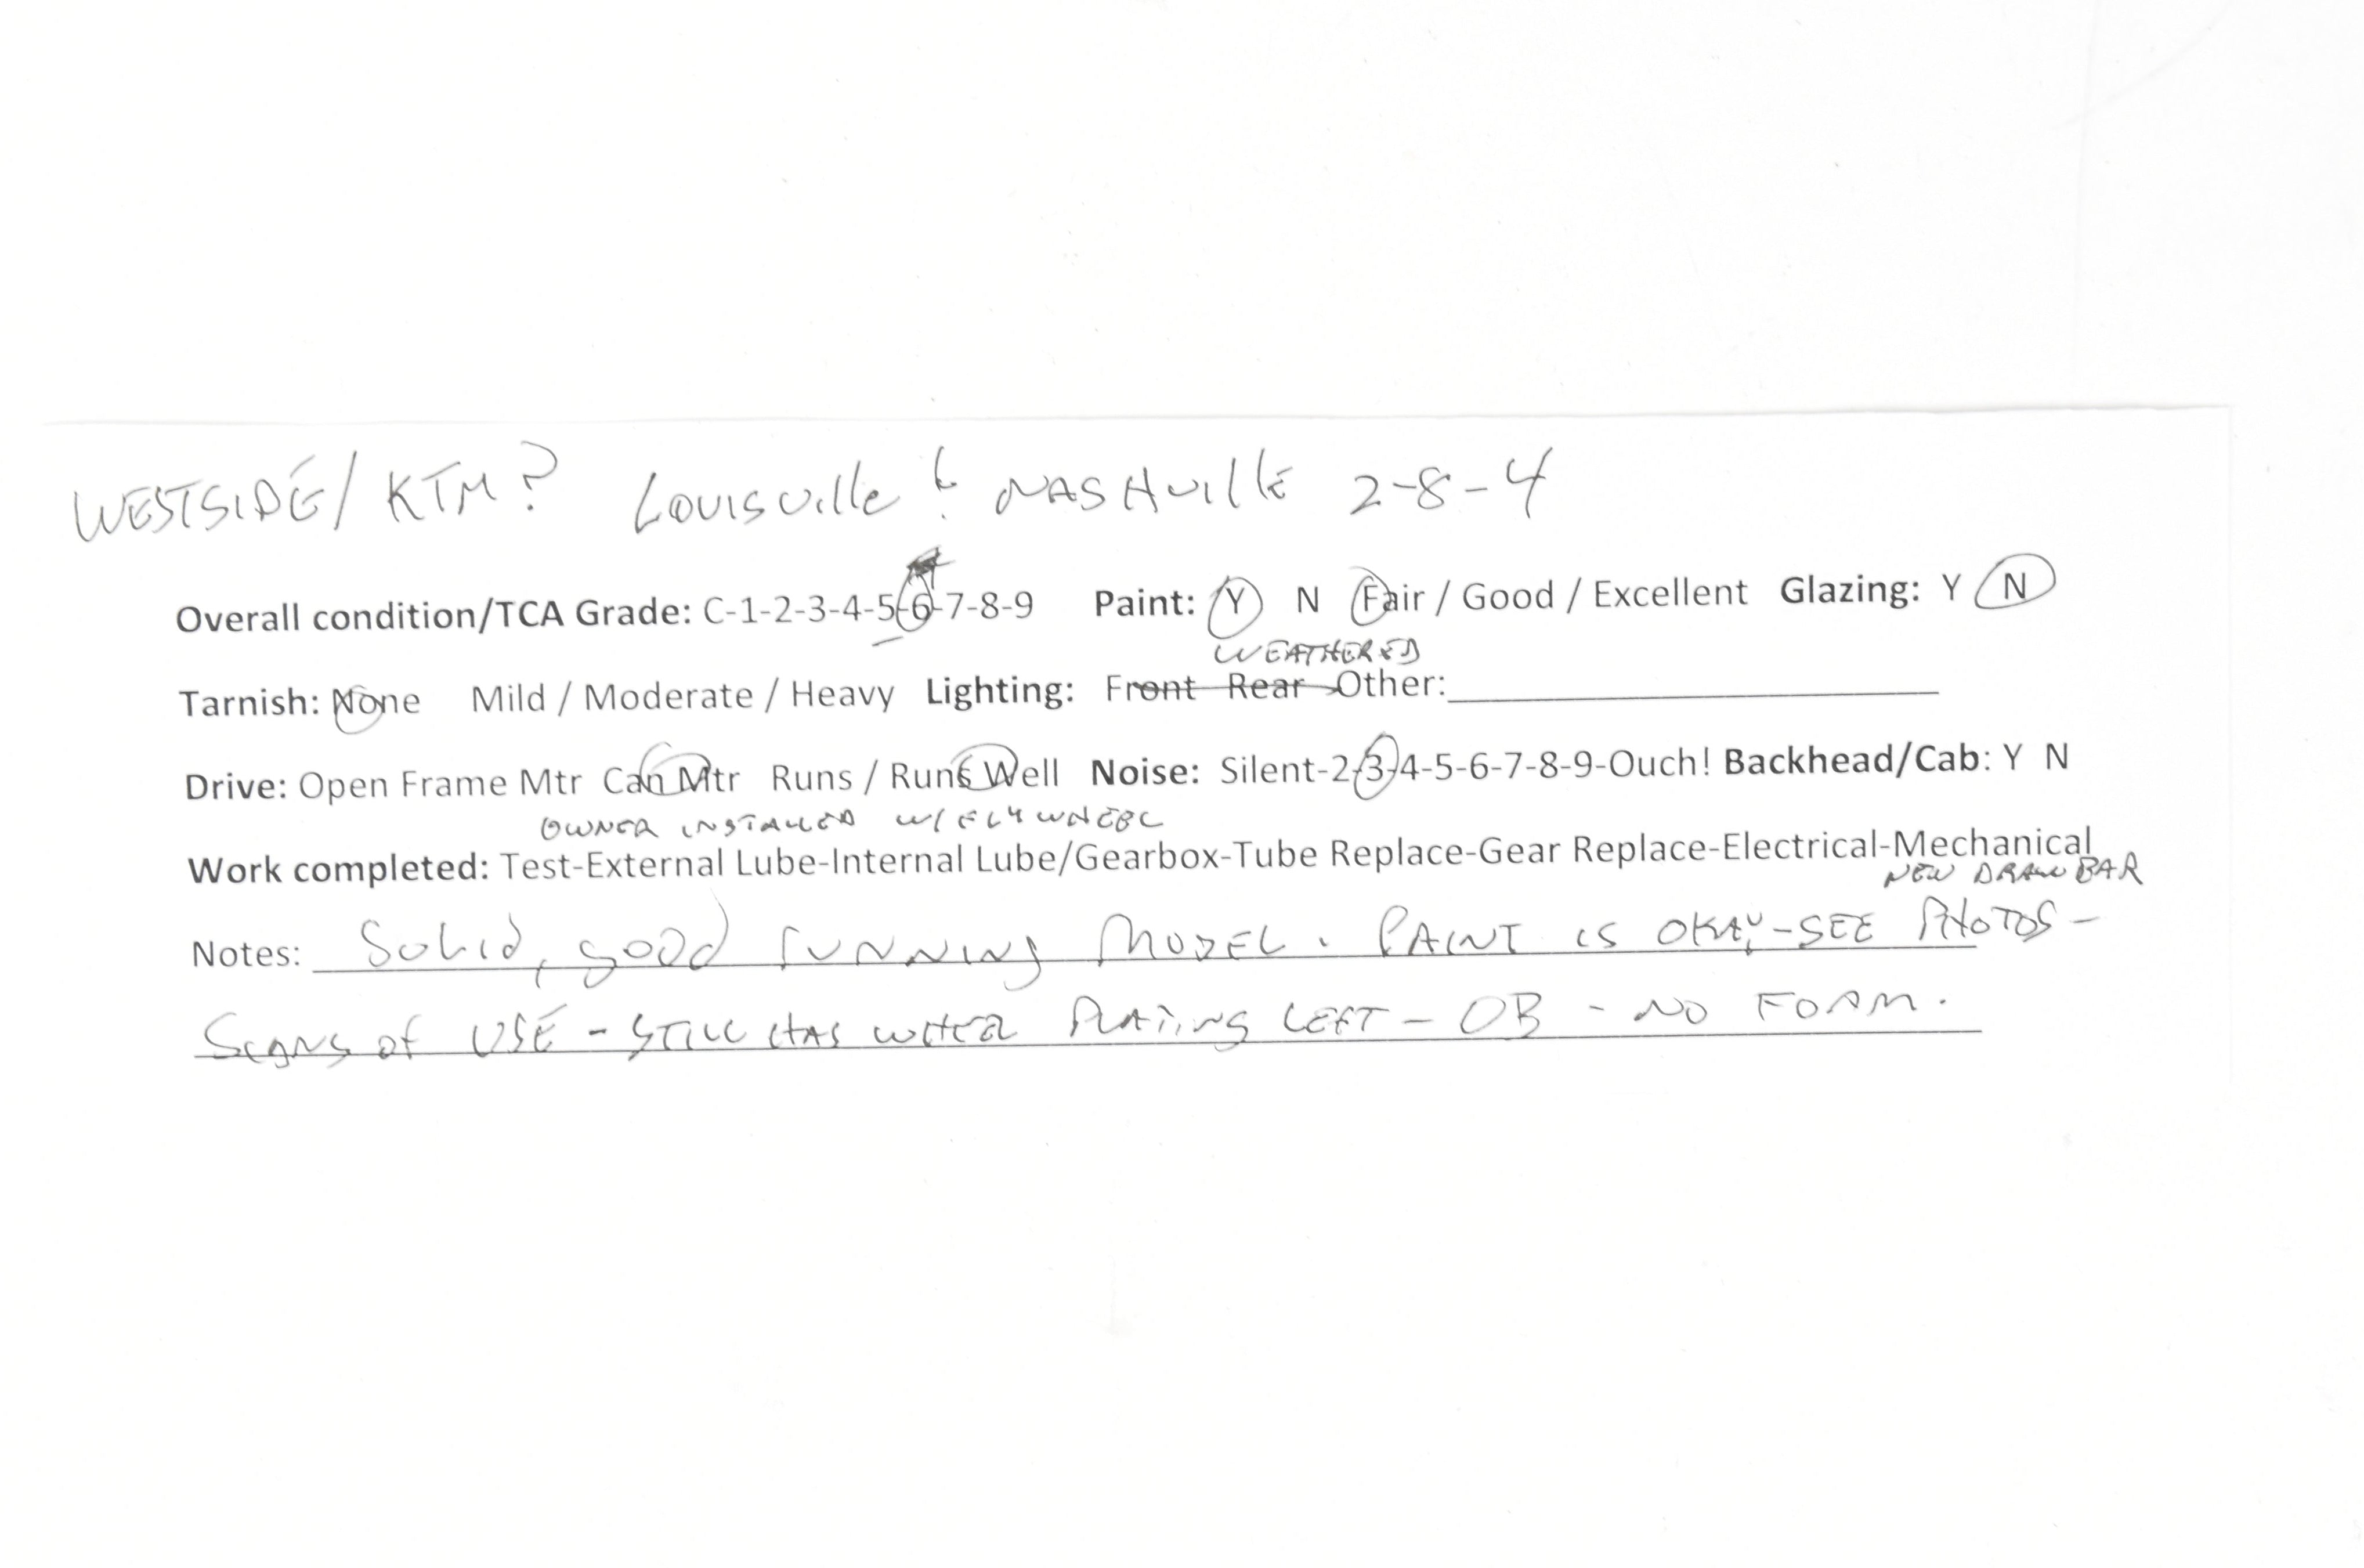 WESTSIDE/KTM? Louisville & NASHville 2-8-4
Overall condition/TCA Grade: C-1-2-3-4-5-6-7-8-9 Paint: Y N Fair / Good / Excellent Glazing: Y N
WEATHERED
Tarnish: None Mild / Moderate / Heavy Lighting: Front Rear Other:
Drive: Open Frame Mtr Can Mtr Runs / Runs Well Noise: Silent-2-3-4-5-6-7-8-9-Ouch! Backhead/Cab: Y N
OWNER INSTALLED W/ FLYWHEEL
Work completed: Test-External Lube-Internal Lube/Gearbox-Tube Replace-Gear Replace-Electrical-Mechanical
NEW DRAWBAR
Notes: Solid, good running MODEL. PAINT IS OKAY-SEE PHOTOS -
SIGNS of USE - STILL HAS WHEEL PLATING LEFT - OB - NO FOAM.